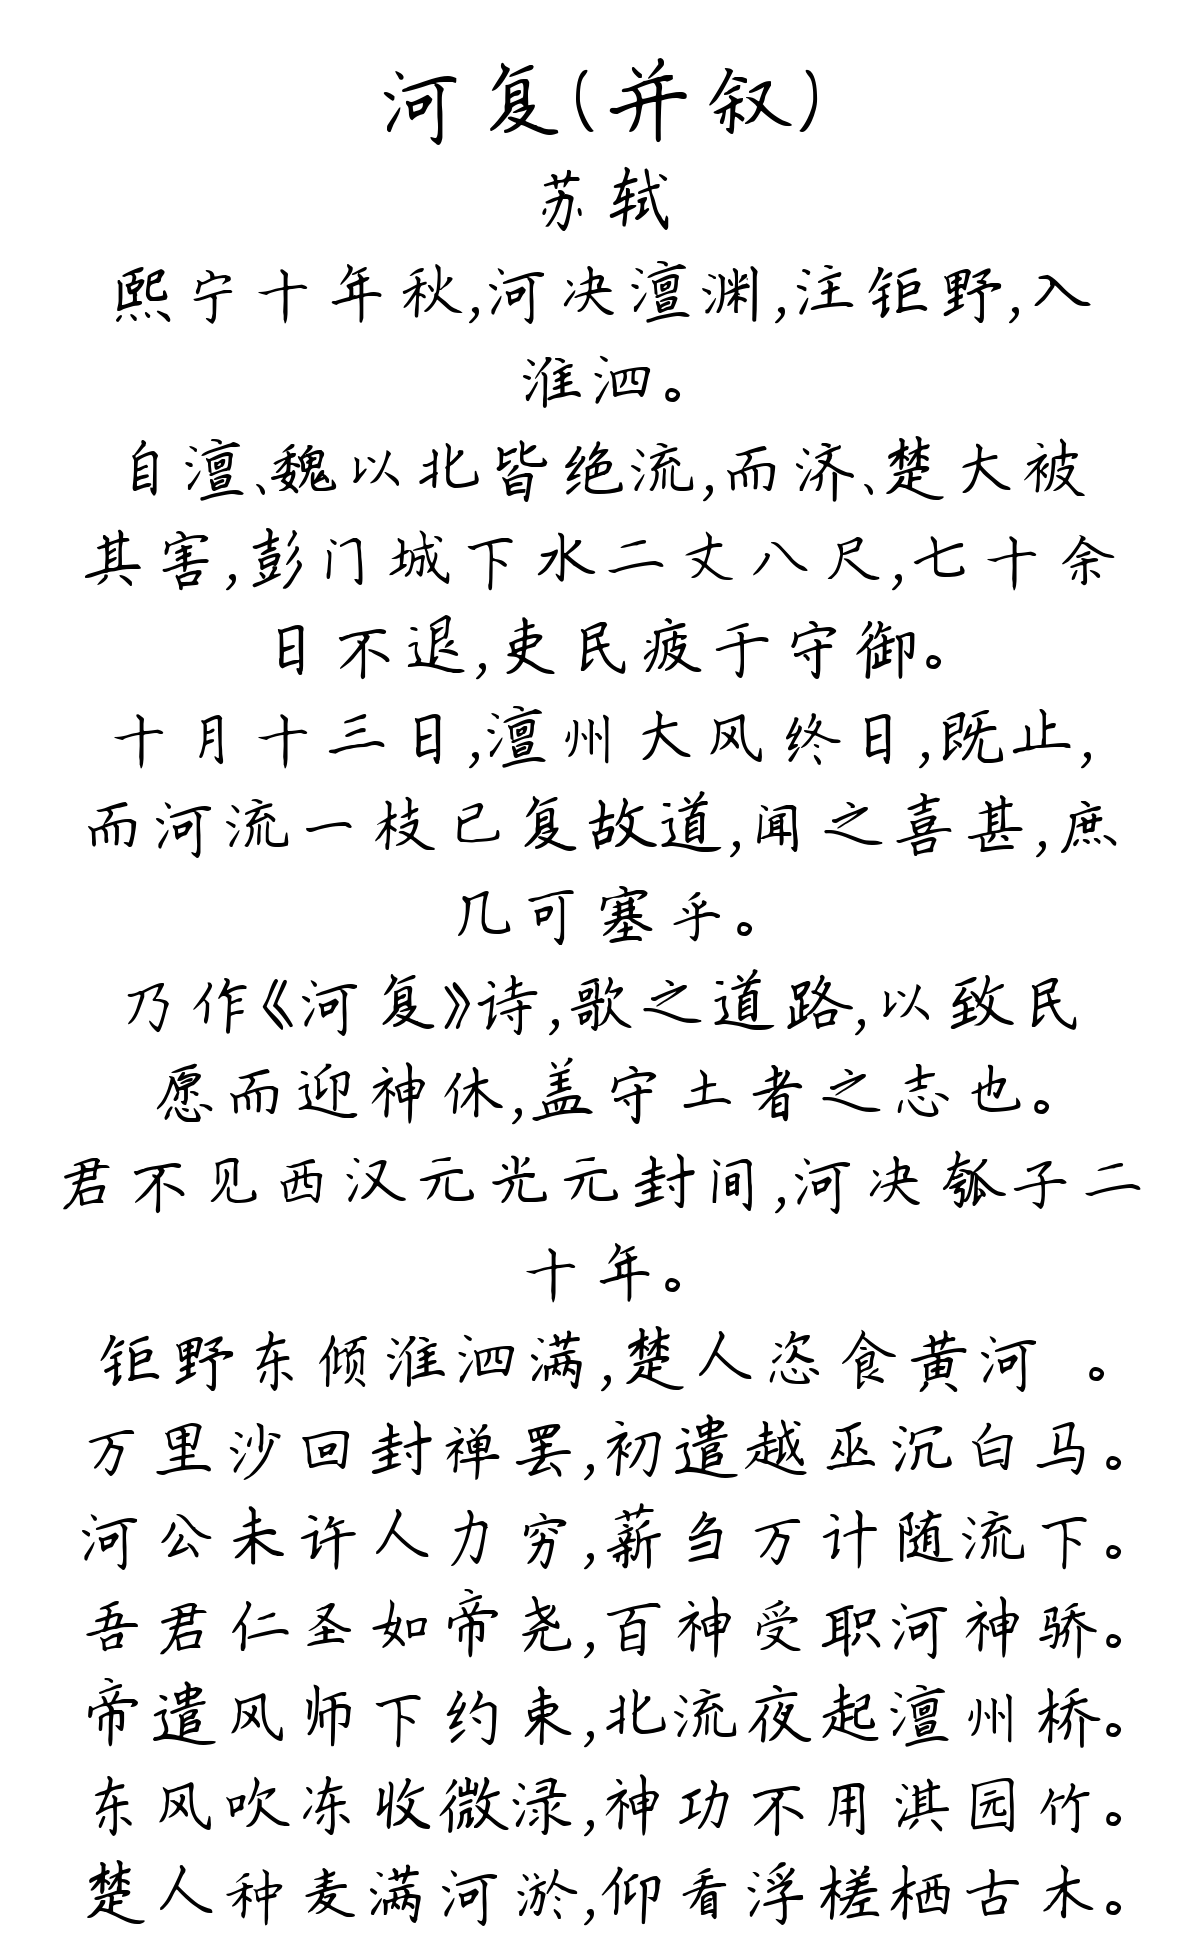 河复(并叙)
苏轼
熙宁十年秋,河决澶渊,注钜野,入
淮泗。
自澶、魏以北皆绝流,而济、楚大被
其害,彭门城下水二丈八尺,七十余
日不退,吏民疲于守御。
十月十三日,澶州大风终日,既止,
而河流一枝已复故道,闻之喜甚,庶
几可塞乎。
乃作《河复》诗,歌之道路,以致民
愿而迎神休,盖守土者之志也。
君不见西汉元光元封间,河决瓠子二
十年。
钜野东倾淮泗满,楚人恣食黄河 。
万里沙回封禅罢,初遣越巫沉白马。
河公未许人力穷,薪刍万计随流下。
吾君仁圣如帝尧,百神受职河神骄。
帝遣风师下约束,北流夜起澶州桥。
东风吹冻收微渌,神功不用淇园竹。
楚人种麦满河淤,仰看浮槎栖古木。